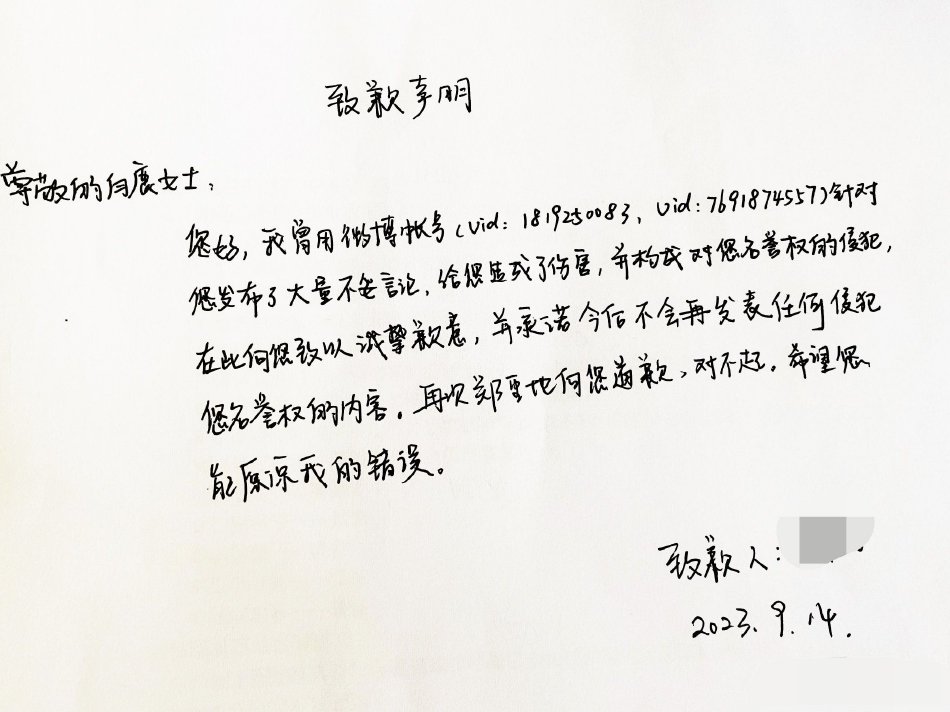 致歉李明
尊敬的白鹿女士,
您好,我曾用微博帐号(uid:1819250083,uid:7691874557)针对
您发布了大量不妥言论,给您造成了伤害,并构成对您名誉权的侵犯,
在此向您致以诚挚歉意,并承诺今后不会再发表任何侵犯
您名誉权的内容。再次郑重地向您道歉、对不起。希望您
能原谅我的错误。
致歉人:
2023.9.14.